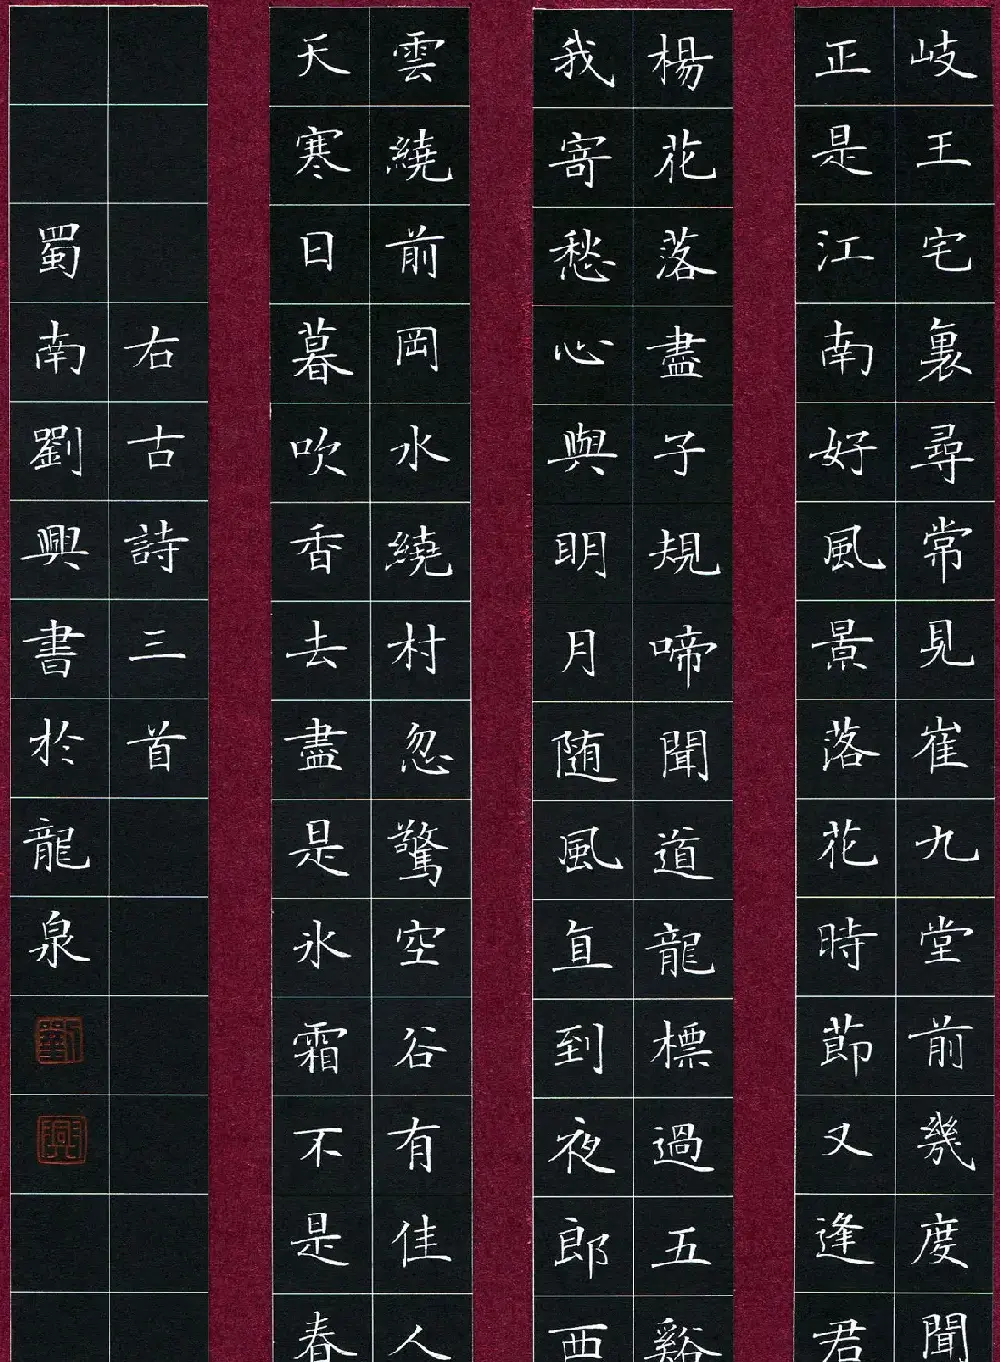 岐王宅裏尋常見崔九堂前幾度聞
正是江南好風景落花時節又逢君
楊花落盡子規啼聞道龍標過五谿
我寄愁心與明月随風直到夜郎西
雲繞前岡水繞村忽驚空谷有佳人
天寒日暮吹香去盡是氷霜不是春
右古詩三首
蜀南劉興書於龍泉
劉
興